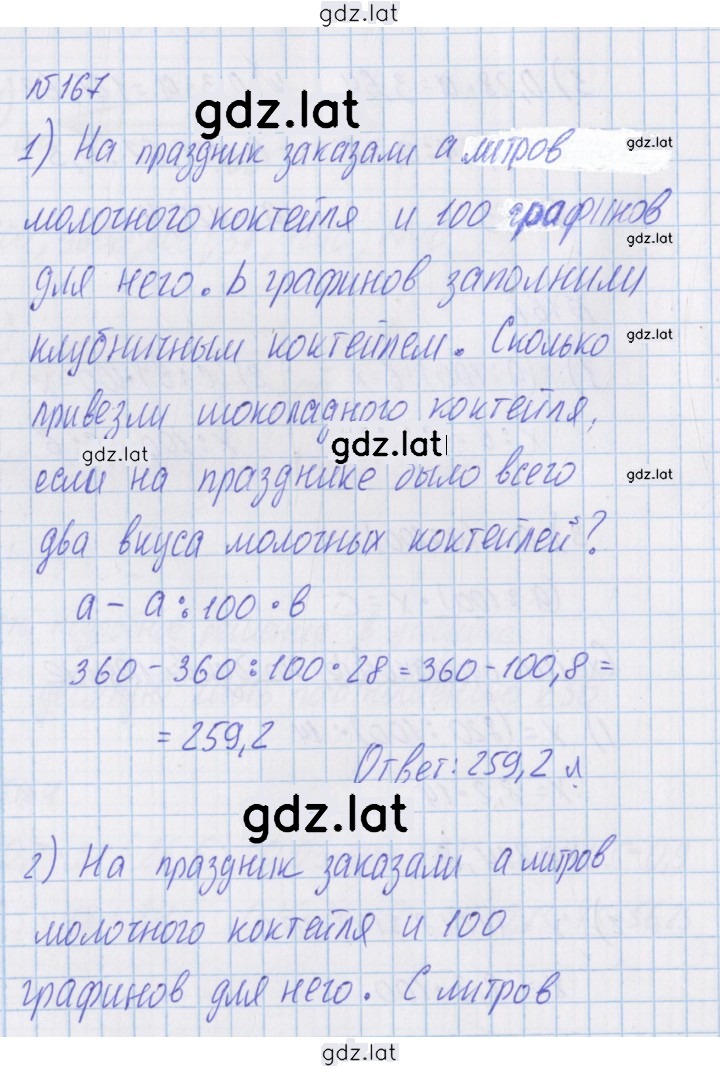 gdz.lat
№167
gdz.lat
1) На праздник заказали a литров
gdz.lat
молочного коктейля и 100 графинов
gdz.lat
для него. b графинов заполнили
клубничным коктейлем. Сколько
gdz.lat
привезли шоколадного коктейля,
gdz.lat
gdz.lat
если на празднике было всего
gdz.lat
два вкуса молочных коктейлей?
a - a : 100 · в
360 - 360 : 100 · 28 = 360 - 100,8 =
= 259,2
Ответ: 259,2 л.
gdz.lat
2) На праздник заказали a литров
молочного коктейля и 100
графинов для него. С литров
gdz.lat